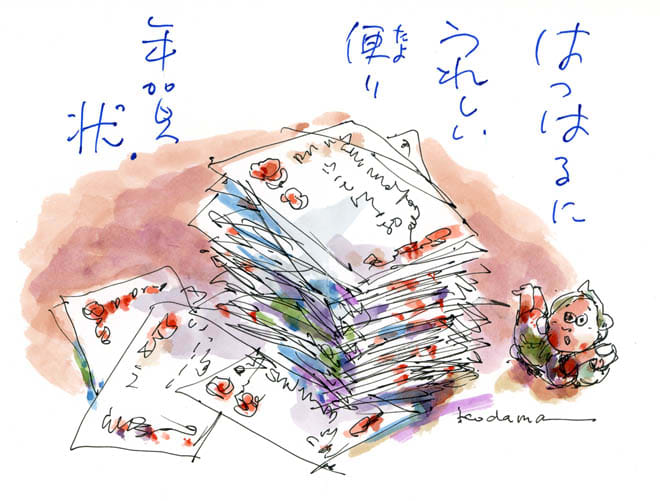 はつはるに
うれしい
便り
たよ
年賀
状.
Kodama